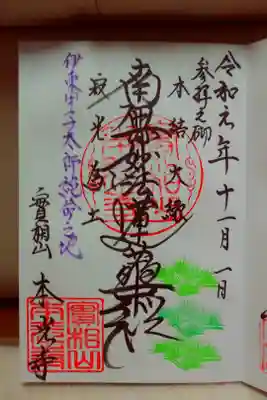 令和元年十一月一日
参拝之砌
本結大縁
南無妙法蓮華経
寂光為土
伊東甲子太郎絶命之地
實相山
本光寺
實相山
本光寺